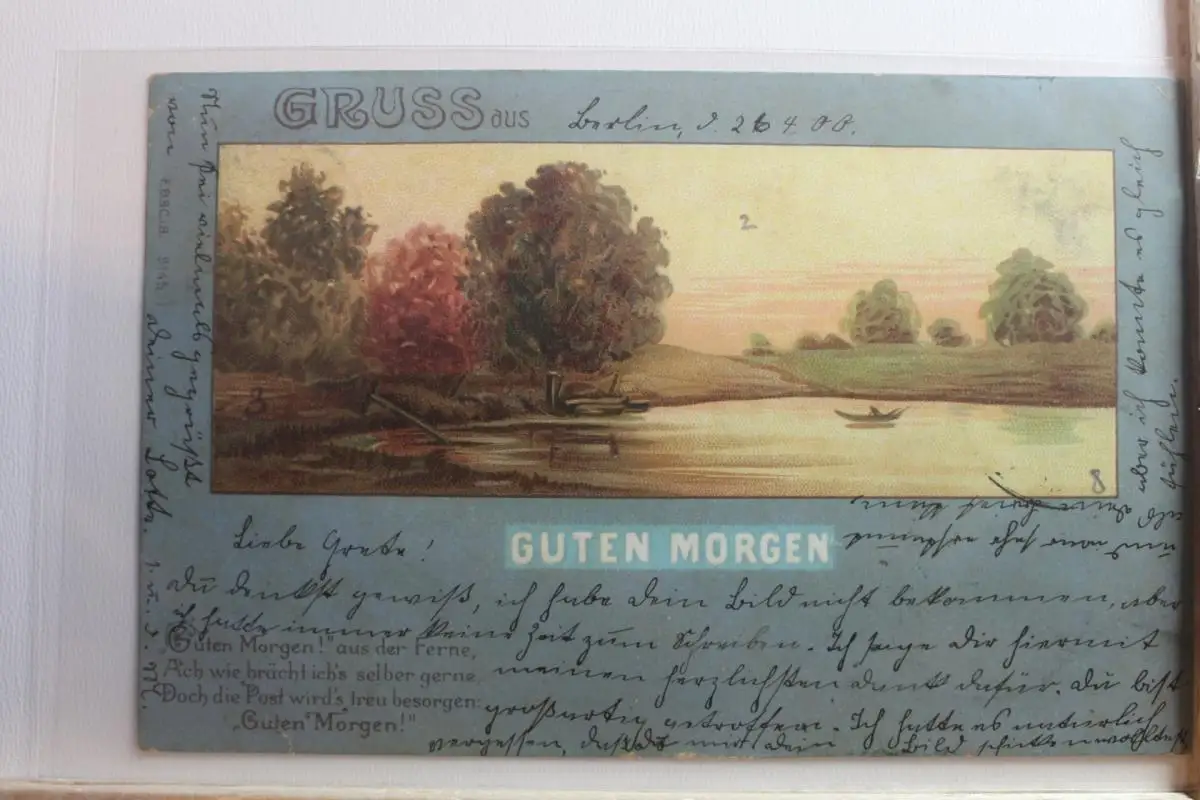 GRUSS aus Berlin, d. 26 4.00.
Liebe Grete!
GUTEN MORGEN
Du denkst gewiß, ich habe dein Bild nicht bekommen, aber
ich hatte immer keine Zeit zum Schreiben. Ich sage Dir hiermit
meinen herzlichsten Dank dafür. Du bist
großartig getroffen. Ich hatte es natürlich
vergessen, daß du mir dein Bild schicken wolltest
und war sehr
aber ich konnte es gleich
Nun sei vielmals gegrüßt
von deiner Lotte.
"Guten Morgen!" aus der Ferne,
Ach wie brächt ich's selber gerne,
Doch die Post wird's treu besorgen:
"Guten Morgen!"
2
3
8